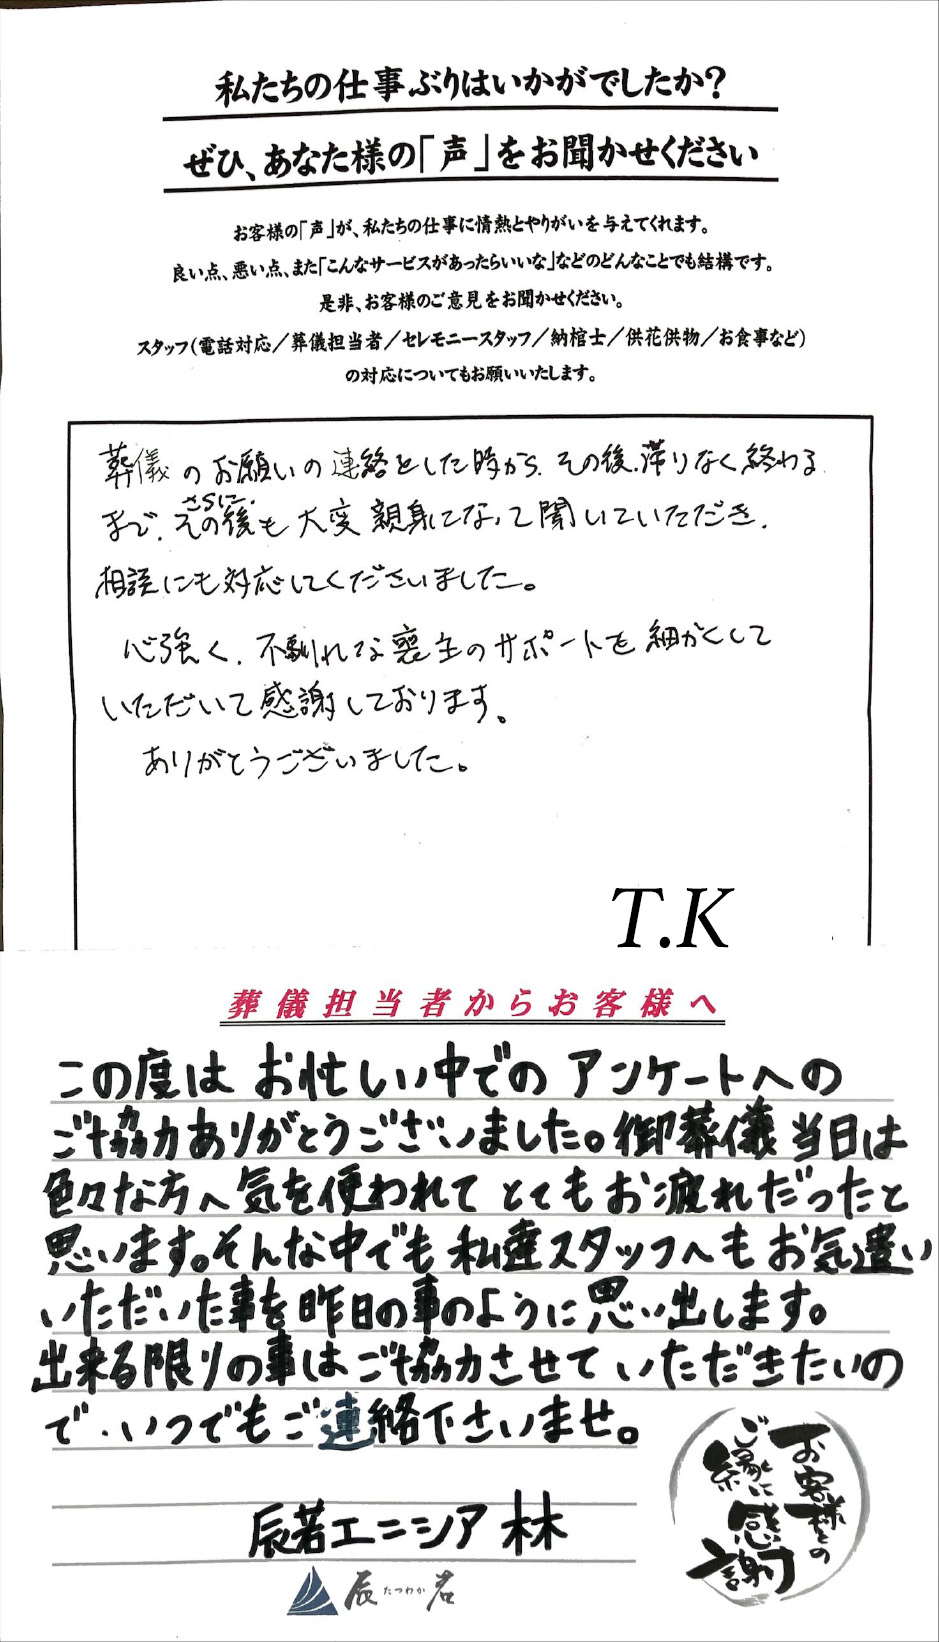 私たちの仕事ぶりはいかがでしたか？
ぜひ、あなた様の「声」をお聞かせください
お客様の「声」が、私たちの仕事に情熱とやりがいを与えてくれます。
良い点、悪い点、また「こんなサービスがあったらいいな」などのどんなことでも結構です。
是非、お客様のご意見をお聞かせください。
スタッフ（電話対応／葬儀担当者／セレモニースタッフ／納棺士／供花供物／お食事など）
の対応についてもお願いいたします。
葬儀のお願いの連絡をした時から、その後、滞りなく終わる
さらに、
まで、その後も大変親身になって聞いていただき、
相談にも対応してくださいました。
心強く、不馴れな喪主のサポートを細かくして
いただいて感謝しております。
ありがとうございました。
T.K
葬儀担当者からお客様へ
この度はお忙しい中でのアンケートへの
ご協力ありがとうございました。御葬儀当日は
色々な方へ気を使われてとてもお疲れだったと
思います。そんな中でも私達スタッフへもお気遣い
いただいた事を昨日の事のように思い出します。
出来る限りの事はご協力させていただきたいの
で、いつでもご連絡下さいませ。
辰若エニシア 林
辰たつわか若
お客様との
ご縁に
感謝